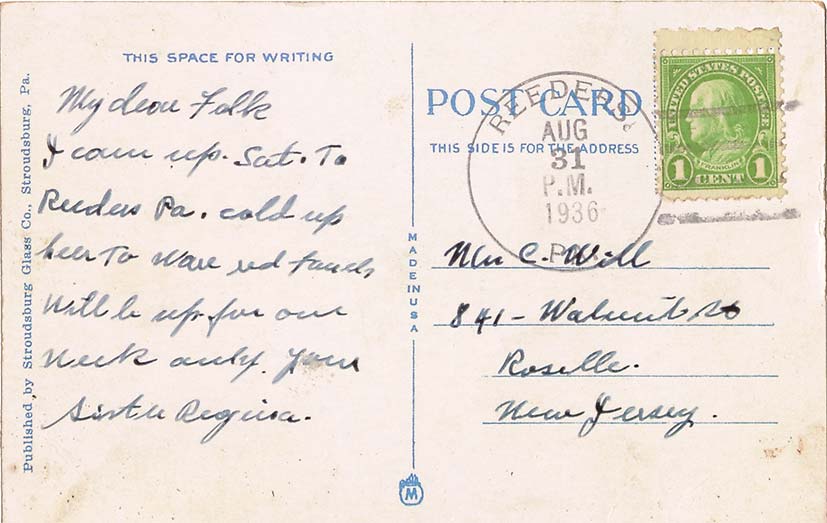 THIS SPACE FOR WRITING
My dear Folk
I came up. Sat. To
Reeders Pa. cold up
heer To Ware red
Will b up for one
Week only. your
Sister Regina.
Published by Stroudsburg Glass Co., Stroudsburg, Pa.
MADE IN USA
M
POST CARD
THIS SIDE IS FOR THE ADDRESS
REEDERS,
AUG
31
P.M.
1936
PA.
UNITED STATES POSTAGE
FRANKLIN
1 CENT 1
C. Will
841 - Walnut St
Roselle.
New Jersey.